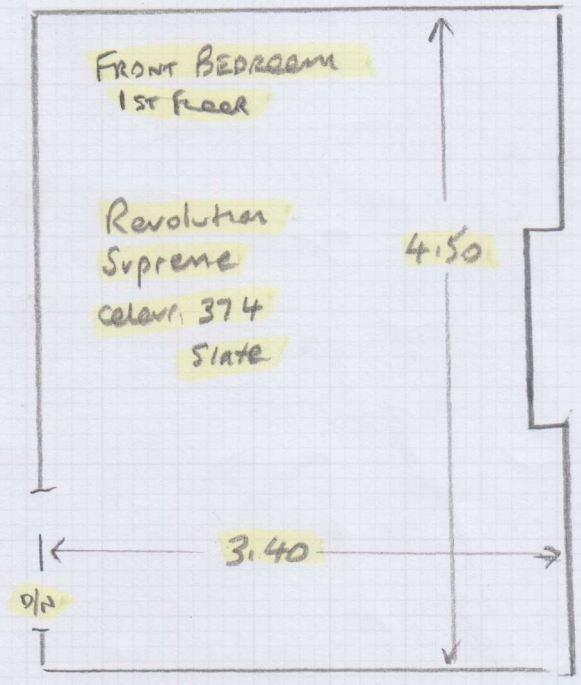 FRONT BEDROOM
1ST FLOOR
Revolution
Supreme
colour. 374
Slate
4.50
3.40
D/N